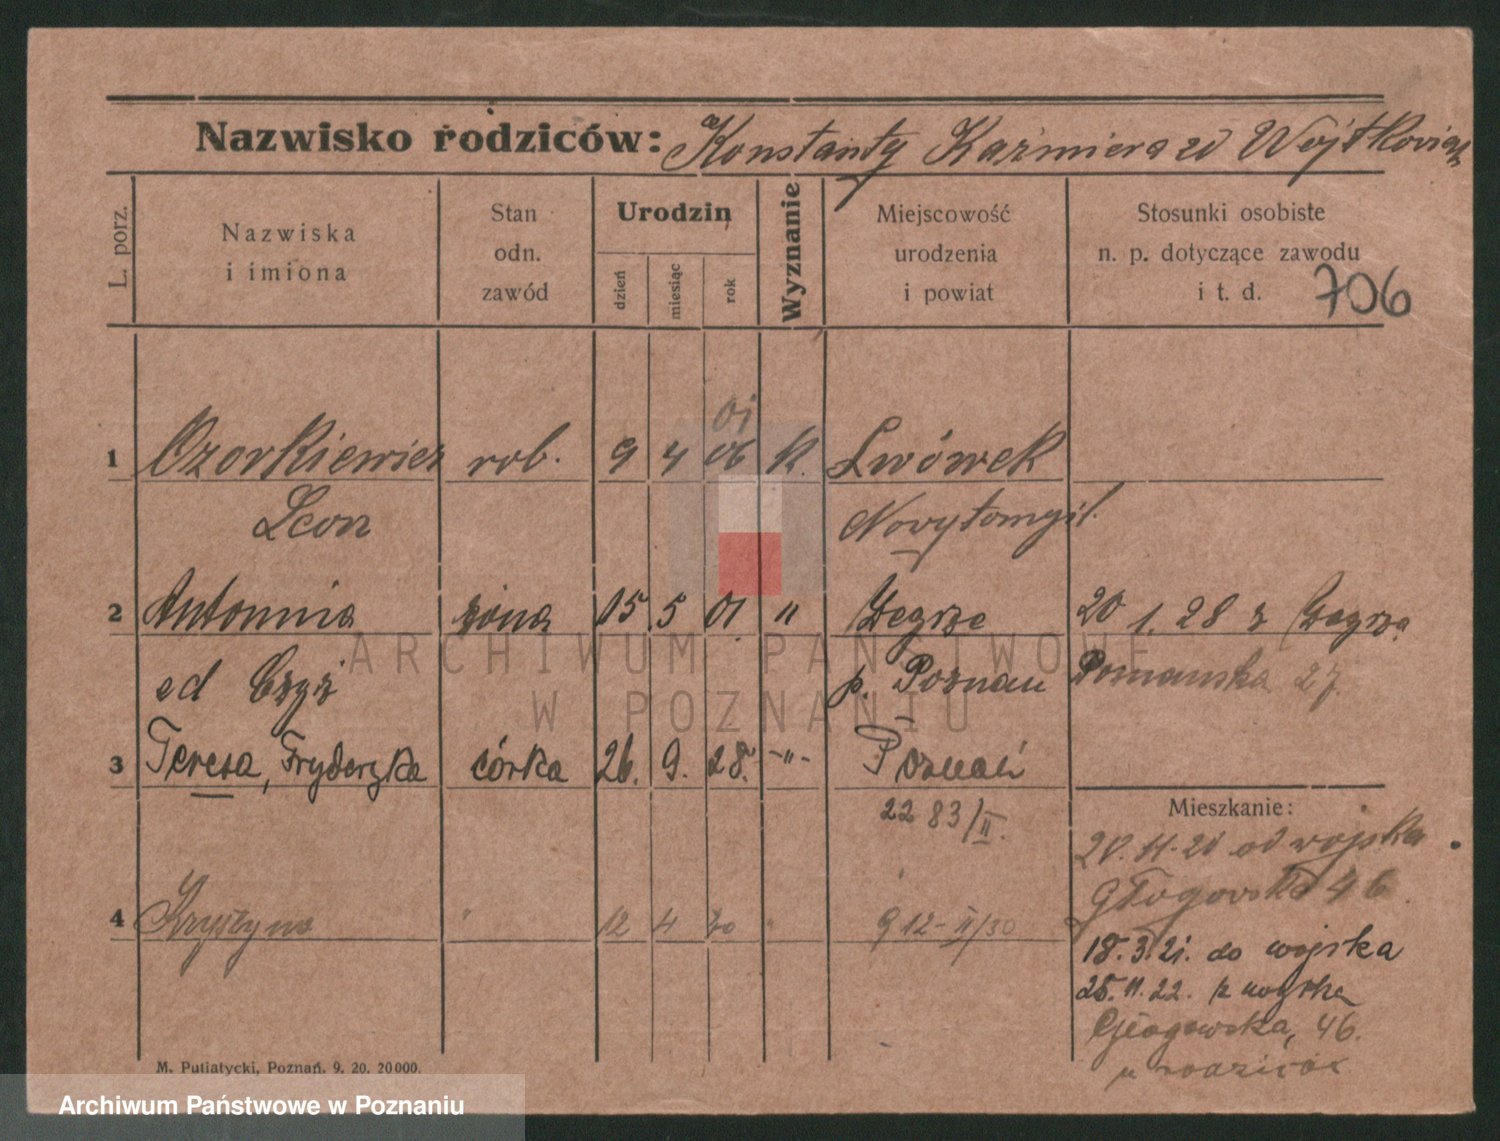 Nazwisko rodziców: Konstanty Kaźmiera zd Wojtkowiak
L. porz.
Nazwiska
i imiona
Stan
odn.
zawód
Urodzin
dzień
miesiąc
rok
Wyznanie
Miejscowość
urodzenia
i powiat
Stosunki osobiste
n. p. dotyczące zawodu
i t. d.
706
01
1 Ozorkiewicz rob. 9 4 06 K. Lwówek
Leon Nowytomyśl.
2 Antonina żona 15 5 01 " Żegrze 20 1. 28 z Żegrza
ARCHIWUM PAŃSTWOWE
W POZNANIU
Czyż p. Poznań 27.
3 Teresa, Fryderyka córka 26. 9. 28. -"- Poznań
Mieszkanie:
22 83/II.
od wojska
4 Krystyna " 12 4 30 " 912-II/30 Głogowska 46
18.3.21. do wojska
25.11.22. z wojska
Głogowska, 46.
u rodziców
M. Putiatycki, Poznań. 9. 20. 20000.
Archiwum Państwowe w Poznaniu